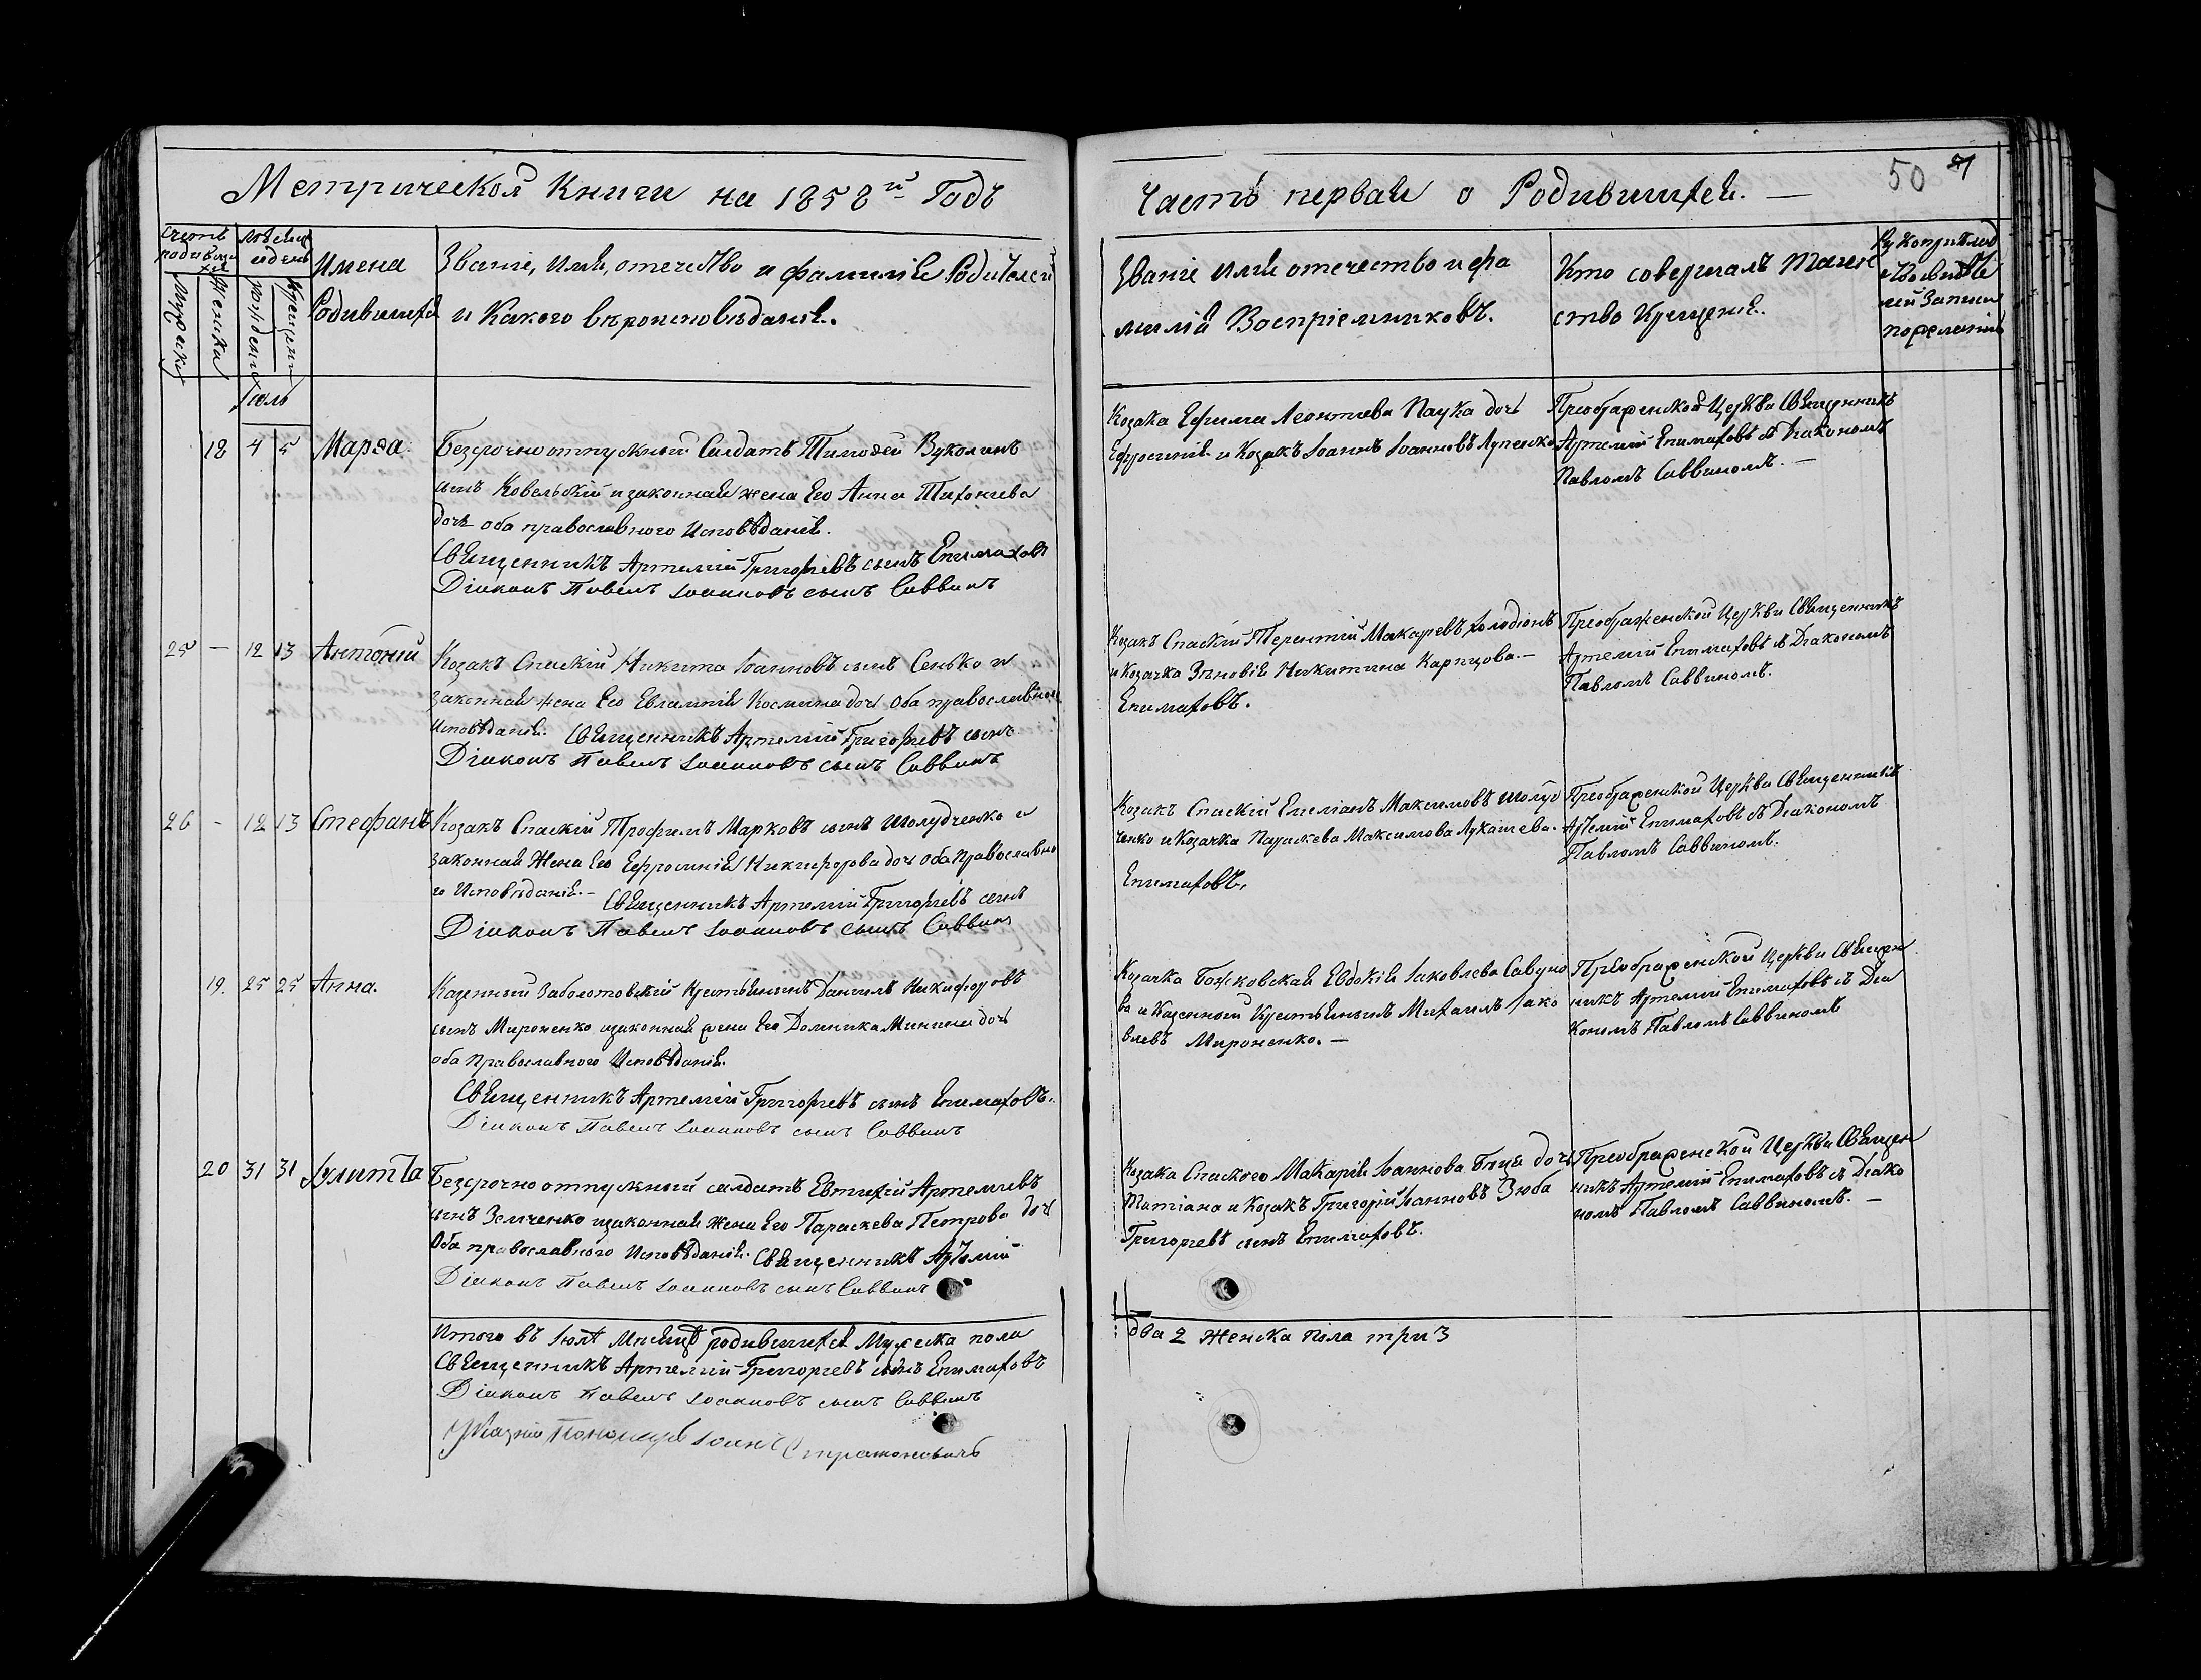 Метрической Книги на 1858й Годъ
Счетъ родившихся
Мужеска
Женска
Месяцъ и день
рожденія
крещенія
Имена
Родившихся
Званіе, Имя, отечество и фамилія Родителей
и Какого вѣроисповѣданія.
Іюль
18 4 5 Марѳа.
Безсрочноотпускный Солдатъ Тимоѳей Вуколинъ
сынъ Ковельскій и законная жена Его Анна Тихоніева
дочь оба православного Исповѣданія.
Священникъ Артемій Григорьевъ сынъ Епимаховъ
Діаконъ Павелъ Іоанновъ сынъ Саввинъ
25 — 12 13 Антоній
Козакъ Спаскій Никита Іоанновъ сынъ Сенько и
законная жена Его Евлампія Косміна дочь оба православного
Исповѣданія. Священникъ Артемій Григорьевъ сынъ
Діаконъ Павелъ Іоанновъ сынъ Саввинъ
26 — 12 13 Стефанъ
Козакъ Спаскій Трофимъ Марковъ сынъ Шолудченко и
законная Жена Его Ефросинія Никифорова дочь оба Православно
го Исповѣданія. — Священникъ Артемій Григорьевъ сынъ
Діаконъ Павелъ Іоанновъ сынъ Саввинъ
19. 25 25 Анна.
Казенный Заболотовскій Крестьянинъ Даніилъ Никифоровъ
сынъ Мироненко и законная жена Его Домника Минина дочь
оба Православного Исповѣданія.
Священникъ Артемій Григорьевъ сынъ Епимаховъ.
Діаконъ Павелъ Іоанновъ сынъ Саввинъ
20 31 31 Іулитта
Безсрочно отпускный солдатъ Евтихій Артемьевъ
сынъ Земченко и законная жена Его Параскева Петрова дочь
Оба православного Исповѣданія. Священникъ Артемій
Діаконъ Павелъ Іоанновъ сынъ Саввинъ
Итого въ Іюлѣ Месяцѣ родившихся Мужеска пола
Священникъ Артемій Григорьевъ сынъ Епимаховъ
Діаконъ Павелъ Іоанновъ сынъ Саввинъ
Пономарь Іоаннъ
Часть первая о Родившихся. —
50
Званіе Имя отечество и фа
милія Воспріемниковъ.
Кто совершалъ Таин
ство Крещенія.
Рукоприклад
Записи
по желанію
Козака Ефима Леонтьева Паука дочь
Ефросинія и Козакъ Іоаннъ Іоанновъ Лупенко
Преображенской Церкви Священникъ
Артемій Епимаховъ съ Діакономъ
Павломъ Саввиномъ. —
Козакъ Спаскій Терентій Макарьевъ Холодіонъ
и Козачка Зѣновія Никитина Карпцова. —
Епимаховъ.
Преображенской Церкви Священникъ
Артемій Епимаховъ съ Діакономъ
Павломъ Саввиномъ.
Козакъ Спаскій Емеліанъ Максимовъ Шолуд
ченко и Козачка Параскева Максимова Лукашева.
Епимаховъ.
Преображенской Церкви Священникъ
Артемій Епимаховъ съ Діакономъ
Павломъ Саввиномъ.
Козачка Божковская Евдокія Іаковлева Савуно
ва и Казенный Крестьянинъ Михаилъ Іако
влевъ Мироненко. —
Преображенской Церкви Священ
никъ Артемій Епимаховъ съ Діа
кономъ Павломъ Саввиномъ
Козака Спаского Макарія Іоаннова дочь
Татіана и Козакъ Григорій Іоанновъ Зюба
Григорьевъ сынъ Епимаховъ.
Преображенской Церкви Священ
никъ Артемій Епимаховъ съ Діако
номъ Павломъ Саввиномъ. —
два 2 Женска Пола три 3